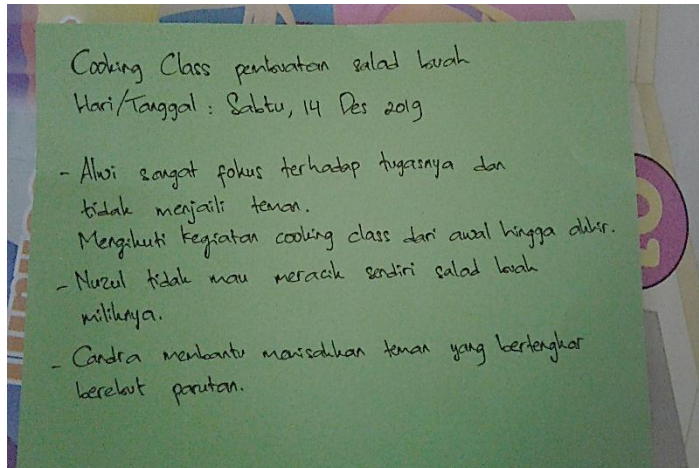 Cooking Class pembuatan salad buah
Hari/Tanggal : Sabtu, 14 Des 2019
- Alwi sangat fokus terhadap tugasnya dan
tidak menjaili teman.
Mengikuti kegiatan cooking class dari awal hingga akhir.
- Nuzul tidak mau meracik sendiri salad buah
miliknya.
- Candra membantu memisahkan teman yang bertengkar
berebut parutan.